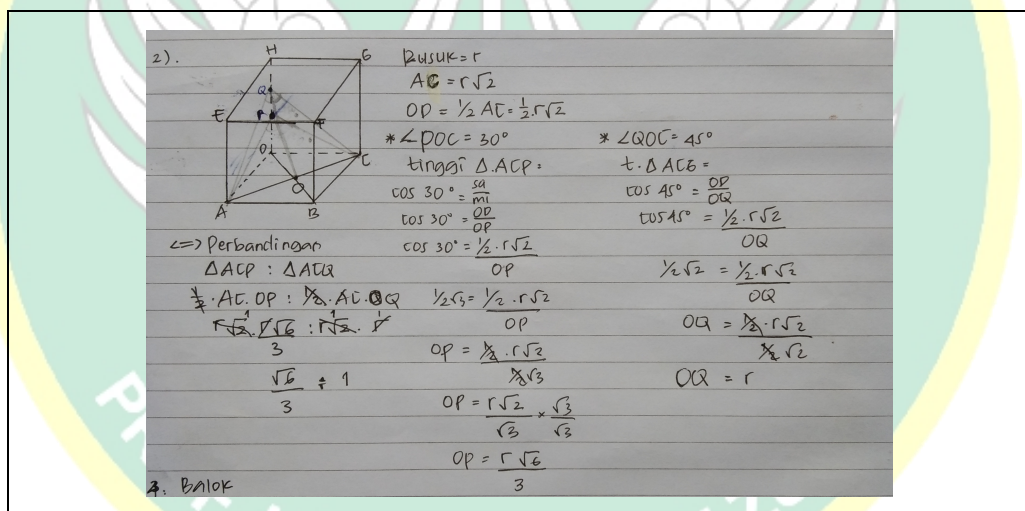 2).
H G
Q
E P F
D C
O
A B
Rusuk = r
AC = r√2
OD = ½ AC = ½.r√2
* ∠POC = 30°
tinggi Δ.ACP =
cos 30° = sa/mi
cos 30° = OD/OP
cos 30° = ½.r√2 / OP
½√3 = ½.r√2 / OP
OP = ½.r√2 / ½√3
OP = r√2/√3 × √3/√3
OP = r√6 / 3
* ∠QOC = 45°
t. Δ ACG =
cos 45° = OD/OQ
cos 45° = ½.r√2 / OQ
½√2 = ½.r√2 / OQ
OQ = ½.r√2 / ½√2
OQ = r
<=> Perbandingan
ΔACP : ΔACQ
½.AC.OP : ½.AC.OQ
r√2.r√6 / 3 : r√2.r
√6 / 3 : 1
3. Balok